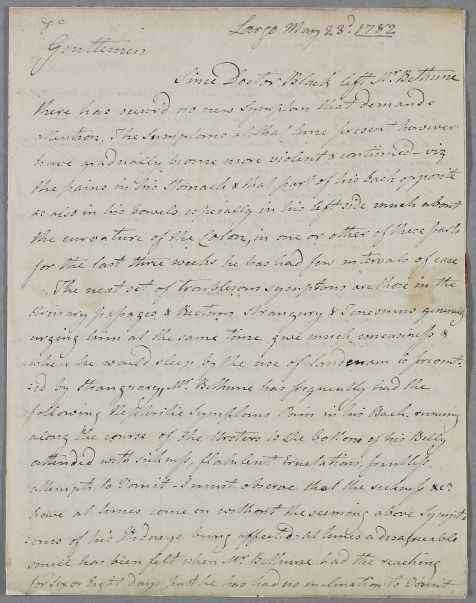 Largo May 23d. 1782
Gentlemen
Since Doctor Black left Mr. Bethune
there has occur'd no new Symptom that demands
attention, The Symptoms at that time present however
have gradually become more violent & continued – viz
the pains in his Stomach & that part of his back opposite
as also in his bowels, especially in his left side much about
the curvature of the Colon, in one or other of these parts
for the last three weeks he has had few intervals of ease
The next set of troublesom symptoms are those in the
Urinary passages, & Rectum Strangury & Tenesmus generally
urging him at the same time, give much uneasiness &
when he would sleep by the use of laudanum is prevent-
ed by Stranguary, Mr. Bethune has frequently had the
following Nephritic Symptoms Pain in his Back running
along the course of the Ureters to the bottom of his Belly
attended with sickness, flatulent Eructations, fruitless
attempts to Vomit – I must observe that the sickness &c.
have at times come on without the seeming above Sympt-
oms of his Kidneys being affected. At times a disagreable
smell has been felt when Mr. Bethune had the reaching
for six or Eight days past he has had no inclination to Vomit